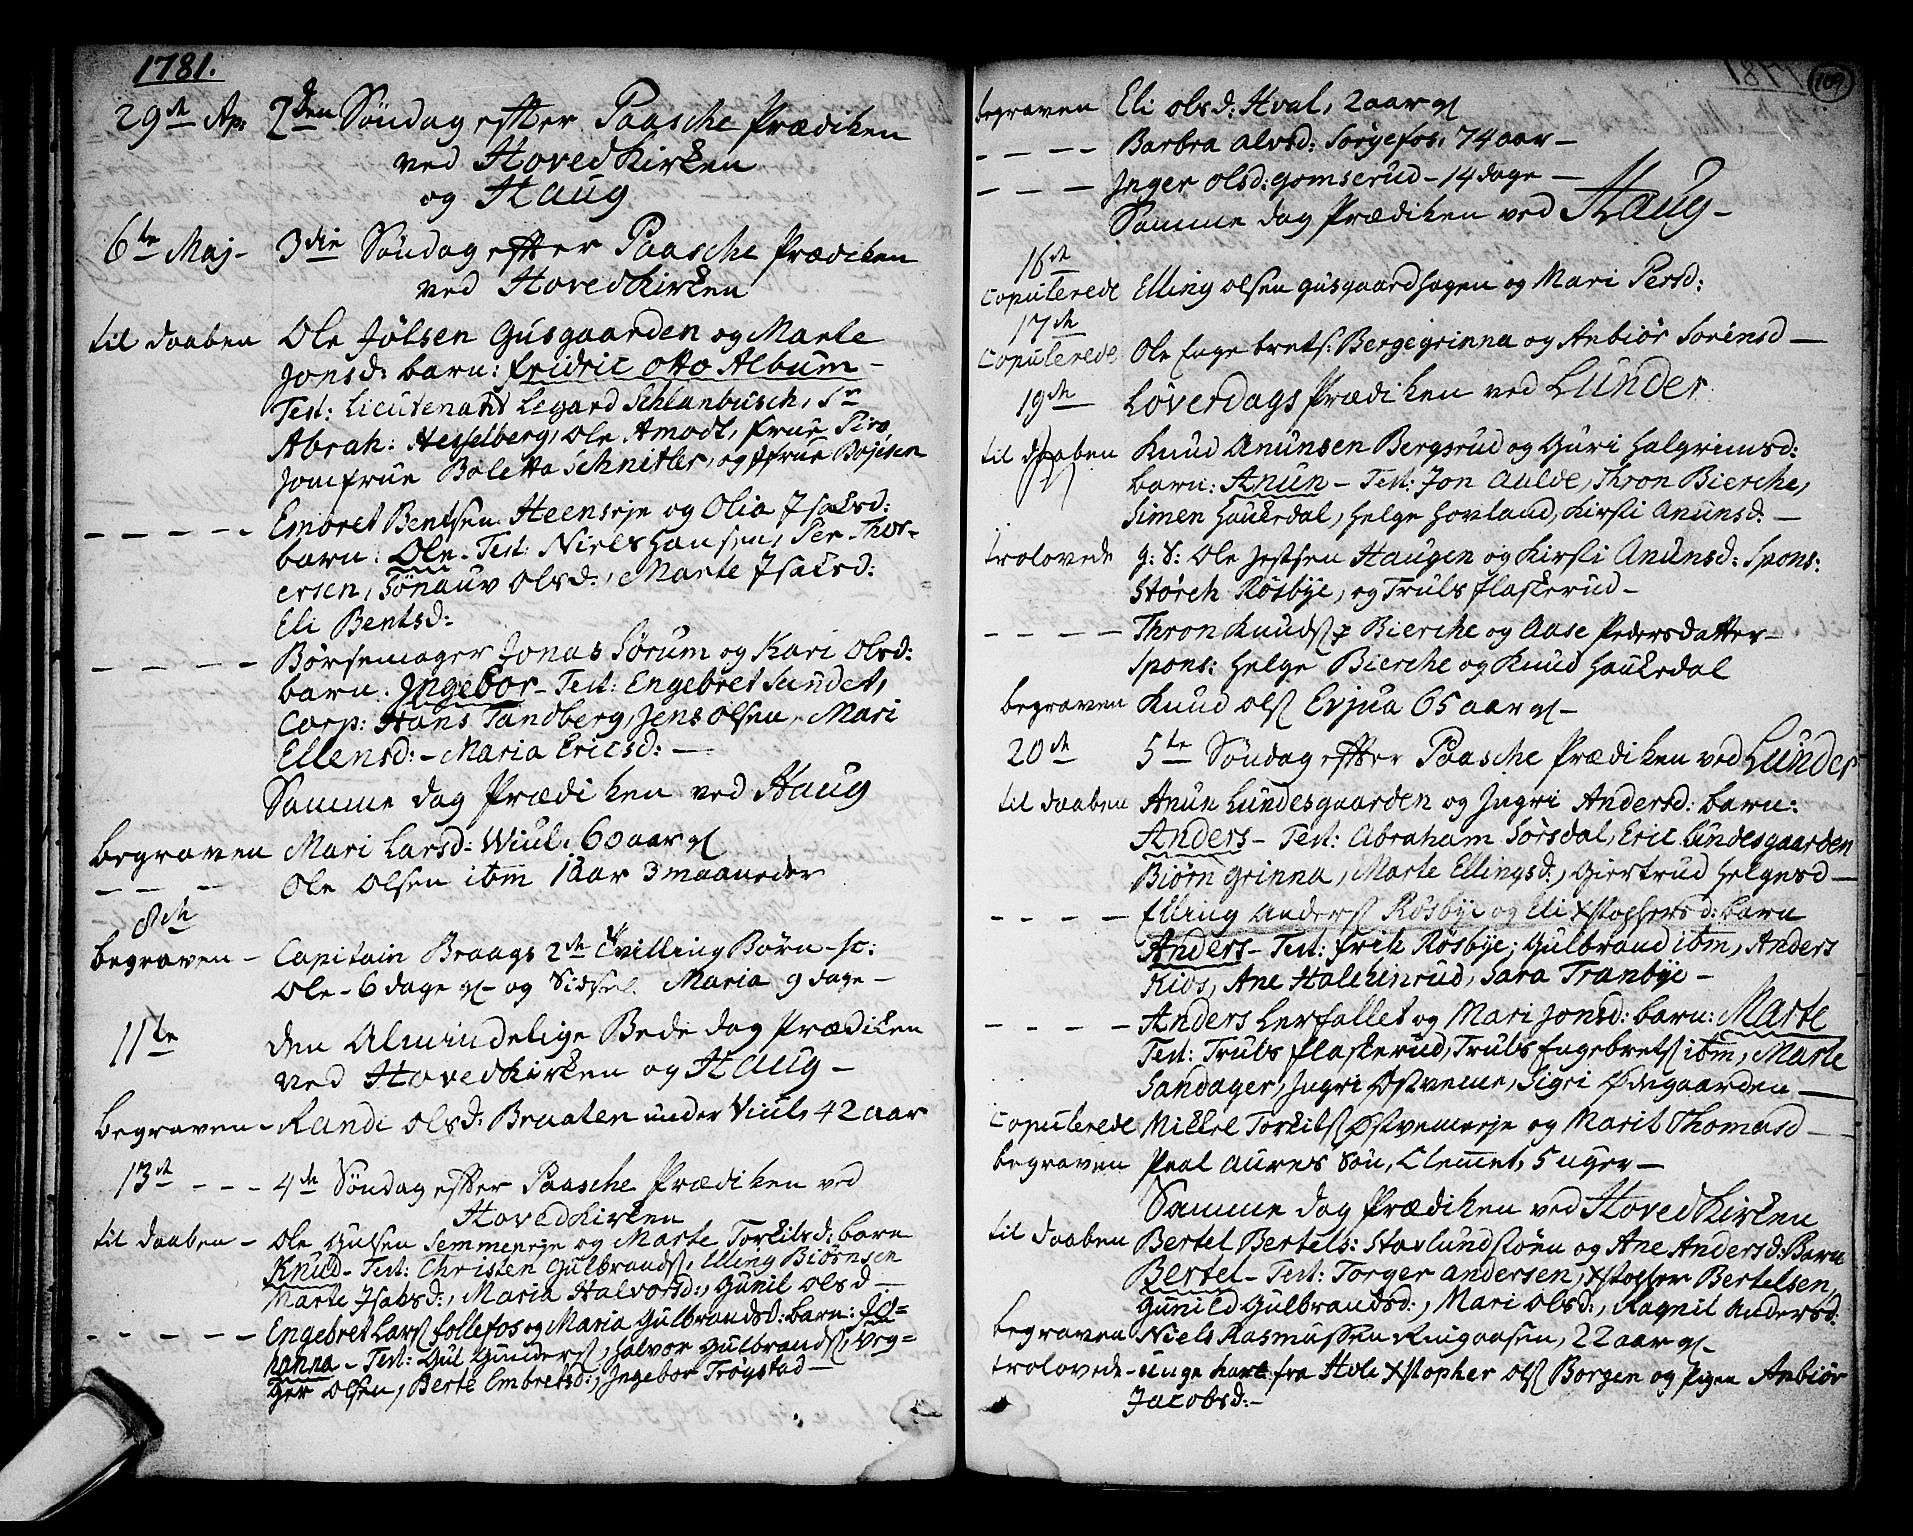 1781.
29de Ap: 2den Søndag efter Paasche Prædiken
ved Hovedkirken
og Haug
6te Maj- 3die Søndag efter Paasche Prædiken
ved Hovedkirken
til daaben Ole Jølsen Gusgaarden og Marte
Jonsd: barn: fridric otto Album-
Test: Lieutenant Legard Schlanbusch, Sr
Abrah: Hesselberg, Ole Amodt, frue Piro,
Jomfrue Boletta Schnitler, og frue Bojesen
---- Emoret Bentsen Heenseje og Olia Isaksd:
barn: Ole- Test: Niels Hansen, Per Thor-
ersen, Sønauv Olsd:, Marte Isaksd:
Eli Bentsd:
---- Børsemager Jonas Sørum og Kari Olsd:
barn: Ingebor- Test: Engebret Sundet,
Corp: Hans Tandberg, Jens Olsen, Mari
Ellensd:- Maria Ericsd:-
Samme dag Prædiken ved Haug
begraven Mari Larsd: Wiul. 60 aar gl
--- Ole Olsen ibm 1 aar 3 maaneder
8de
begraven- Capitain Braags 2de Tvilling Børn- sc:
Ole- 6 dage gl- og Sidsel Maria 9 dage-
11te den Almindelige Bede dag Prædiken
ved Hovedkirken og Haug-
begraven- Randi Olsd: Braaten under Viul, 42 aar
13de --- 4de Søndag efter Paasche Prædiken ved
Hovedkirken
til daaben- Ole Gulsen Semmeneje og Marte Torkilsd: barn
Knud- Test: Christen Gulbrands, Elling Biørnsen
Marte Isaksd:, Maria Halvorsd:, Gunil Olsd-
----- Engebret Lars follefos og Maria Gulbrandsd: barn: Jo-
hanna- Test: Gul Gunders, Halvor Gulbrands, Veg-
ger Olsen, Berte Embretsd:, Ingebor Trøgstad-
109
begraven Eli Olsd: Hval, 2 aar gl
---- Barbra Alvsd: Sørgefos, 74 aar-
--- Inger Olsd: Gomserud- 14 dage-
Samme dag Prædiken ved Haug-
16de
Copulerede Elling Olsen Gusgaardhagen og Mari Persd:
17de
Copulerede Ole Engebrets: Bergegrinna og Anbiør Sørensd-
19de Løverdags Prædiken ved Lunder
til daaben Knud Anunsen Bergsrud og Guri Halgrimsd:
barn: Anun- Test: Jon Aulde, Thron Bierche,
Simen Haukedal, Helge Hovland, Kirsti Anunsd:-
trolovede g: S: Ole Jestsen Haugen og Kirsti Anunsd: Spons:
Størch Røsbye, og Truls flaskerud-
---- Thron Knuds Bierche og Aase Pedersdatter-
Spons: Helge Bierche og Knud Haukedal
begraven Knud Ols Evjua 65 aar gl-
20de 5te Søndag efter Paasche Prædiken ved Lunder
til daaben Anun Lundesgaarden og Ingri Andersd: barn:
Anders- Test: Abraham Sørsdal, Eric Lundesgaarden
Biørn Grinna, Marte Ellingsd:, Giertrud Helgesd-
---- Elling Anders Røsbye og Eli Xstophersd: barn
Anders- Test: Erik Røsbye, Gulbrand ibm, Anders
Kios, Ane Halchinrud, Sara Tranbye-
---- Anders Lerfallet og Mari Jonsd: barn: Marte
Test: Truls flaskerud, Truls Engebrets ibm, Marte
Sandager, Ingri Østveme, Sigri Ødegaarden-
Copulerede Mikkel Torkils Østvemeje og Marit Thomasd-
begraven Peal Aures Søn, Clemet, 5 uger-
Samme dag Prædiken ved Hovedkirken
til daaben Bertel Bertels: Stavlundstøen og Ane Andersd: Barn
Bertel- Test: Torger Andersen, Xstopher Bertelsen,
Gunild Gulbrandsd:, Mari Olsd:, Ragnil Andersd:
begraven Niels Rasmussen Ringaasen, 22 aar gl-
trolovede- unge karl fra Hole Xstopher Ols Borgen og Pigen Anbiør
Jacobsd:-